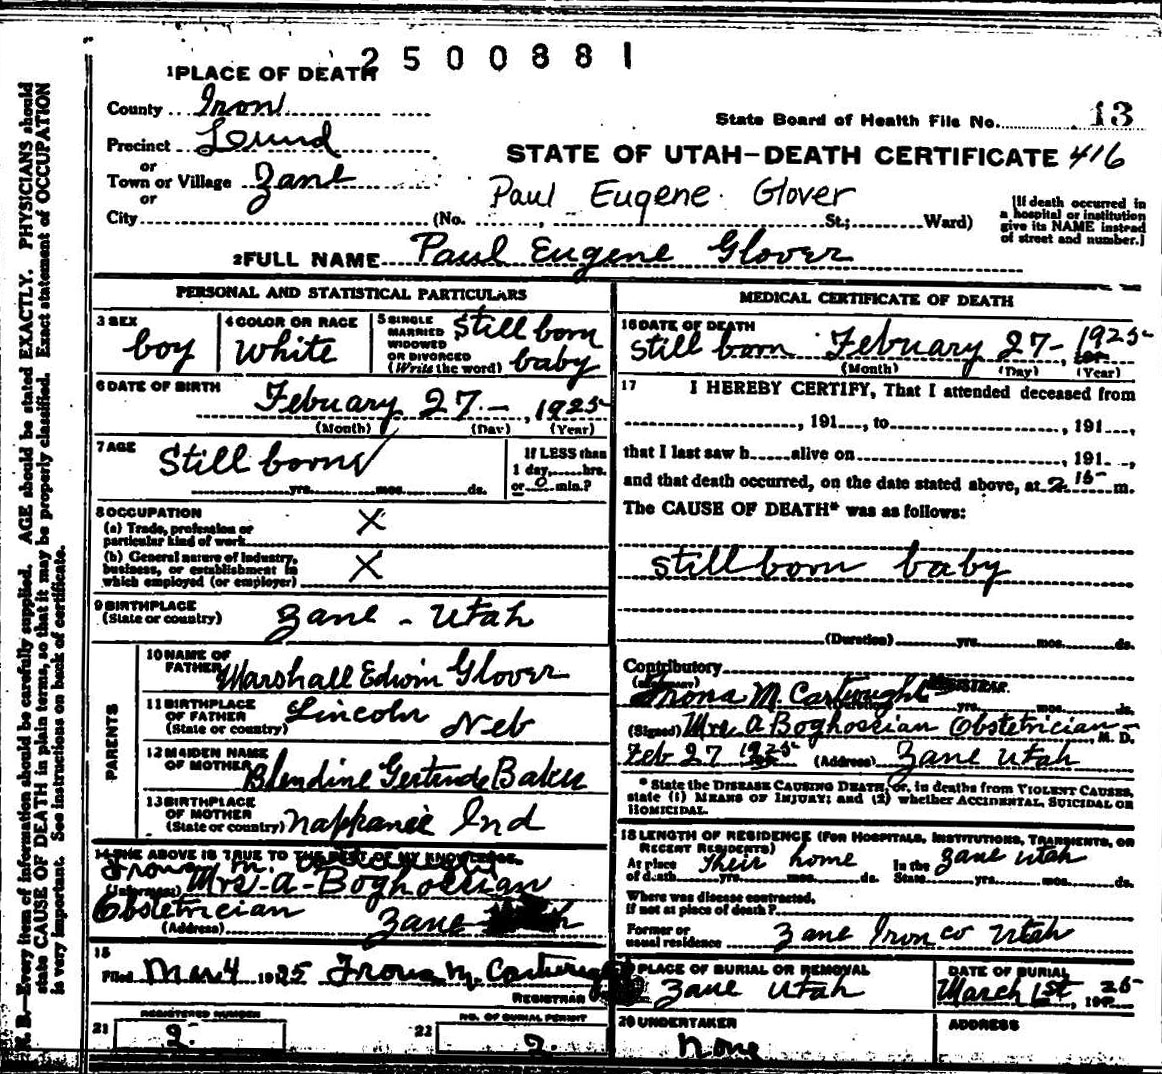 2500881
1 PLACE OF DEATH
County Iron
State Board of Health File No. 13
Precinct Lund
STATE OF UTAH-DEATH CERTIFICATE 416
or
Town or Village Zane
or
Paul Eugene Glover
City (No. , St.; Ward)
[If death occurred in
a hospital or institution
give its NAME instead
of street and number.]
2 FULL NAME Paul Eugene Glover
PERSONAL AND STATISTICAL PARTICULARS
3 SEX boy
4 COLOR OR RACE White
5 SINGLE
MARRIED
WIDOWED
OR DIVORCED
(Write the word)
Still born
baby
6 DATE OF BIRTH
Febuary 27 - , 1925
(Month) (Day) (Year)
7 AGE
Still born
yrs. mos. ds.
If LESS than
1 day, hrs.
or 0 min.?
8 OCCUPATION
(a) Trade, profession or
particular kind of work X
(b) General nature of industry,
business, or establishment in
which employed (or employer) X
9 BIRTHPLACE
(State or country) Zane - Utah
PARENTS
10 NAME OF
FATHER Marshall Edwin Glover
11 BIRTHPLACE
OF FATHER
(State or country) Lincoln Neb
12 MAIDEN NAME
OF MOTHER Blendine Gertrude Baker
13 BIRTHPLACE
OF MOTHER
(State or country) Nappanee Ind
14 THE ABOVE IS TRUE TO THE BEST OF MY KNOWLEDGE.
(Informant) Mrs. A - Boghossian
Obstetrician Zane
(Address)
15
Filed Mar 4 1925
REGISTRAR
REGISTERED NUMBER
21 2
NO. OF BURIAL PERMIT
22 2
MEDICAL CERTIFICATE OF DEATH
16 DATE OF DEATH
still born Febuary 27 - 1925
(Month) (Day) (Year)
17 I HEREBY CERTIFY, That I attended deceased from
, 191 , to , 191 ,
that I last saw h alive on , 191 ,
and that death occurred, on the date stated above, at 2 15 m.
The CAUSE OF DEATH* was as follows:
still born baby
(Duration) yrs. mos. ds.
Contributory
M. Cartwright REGISTRAR.
yrs. mos. ds.
(Signed) Mrs A Boghossian Obstetrician M. D.
Feb 27 1925 (Address) Zane Utah
* State the DISEASE CAUSING DEATH, or, in deaths from VIOLENT CAUSES,
state (1) MEANS OF INJURY; and (2) whether ACCIDENTAL, SUICIDAL OR
HOMICIDAL.
18 LENGTH OF RESIDENCE (FOR HOSPITALS, INSTITUTIONS, TRANSIENTS, OR
RECENT RESIDENTS)
At place Their home In the Zane Utah
of death yrs. mos. ds. State yrs. mos. ds.
Where was disease contracted,
if not at place of death?
Former or
usual residence Zane Iron co Utah
PLACE OF BURIAL OR REMOVAL
Zane Utah
DATE OF BURIAL
March 1st, 25
20 UNDERTAKER
None
ADDRESS
N. B.—Every item of information should be carefully supplied. AGE should be stated EXACTLY. PHYSICIANS should
state CAUSE OF DEATH in plain terms, so that it may be properly classified. Exact statement of OCCUPATION
is very important. See instructions on back of certificate.